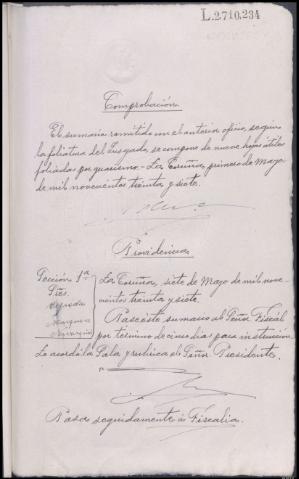 L.2710.234
Comprobación.
El sumario remitido con el anterior oficio, según
la foliatura del Juzgado, se compone de nueve hojas útiles
foliadas por guarismo.- La Coruña, primero de Mayo
de mil novecientos treinta y siete.
Providencia
Sección 1ª
Sres.
La Coruña, siete de Mayo de mil nove-
cientos treinta y siete.
Pase este sumario al Señor Fiscal
por término de cinco días para instrucción.
Lo acordó la Sala y rubrica el Señor Presidente.
Pasa seguidamente a Fiscalia.